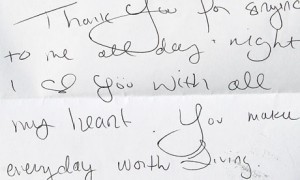 Thank you for singing
to me all day • night
I ♡ you with all
my heart. You make
everyday worth living.